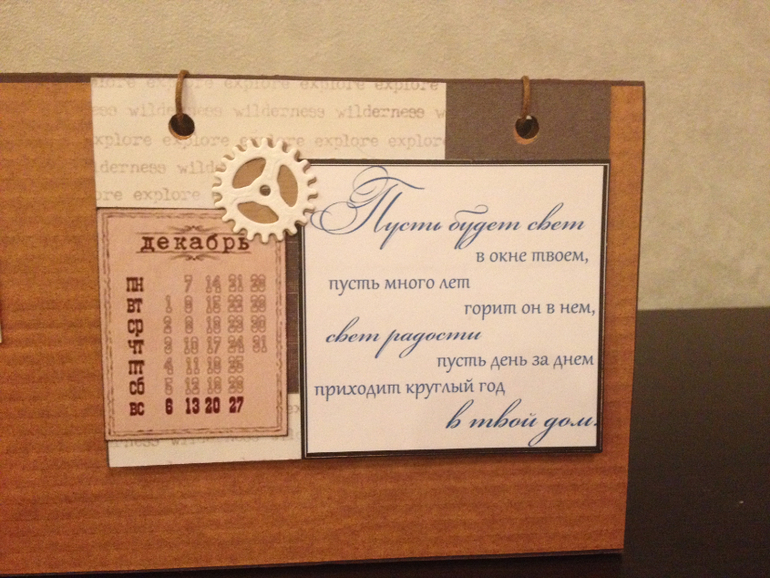 explore explore explore
ness wilderness wilderness wilderness w
explore explore explore explore explor
lderness wilde
ore explore
декабрь
пн 7 14 21 28
вт 1 8 15 22 29
ср 2 9 16 23 30
чт 3 10 17 24 31
пт 4 11 18 25
сб 5 12 19 26
вс 6 13 20 27
Пусть будет свет
в окне твоем,
пусть много лет
горит он в нем,
свет радости
пусть день за днем
приходит круглый год
в твой дом.